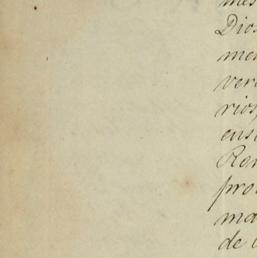 mes
Dios
men
ver
rios,
ens
Rom
pro
ma
de